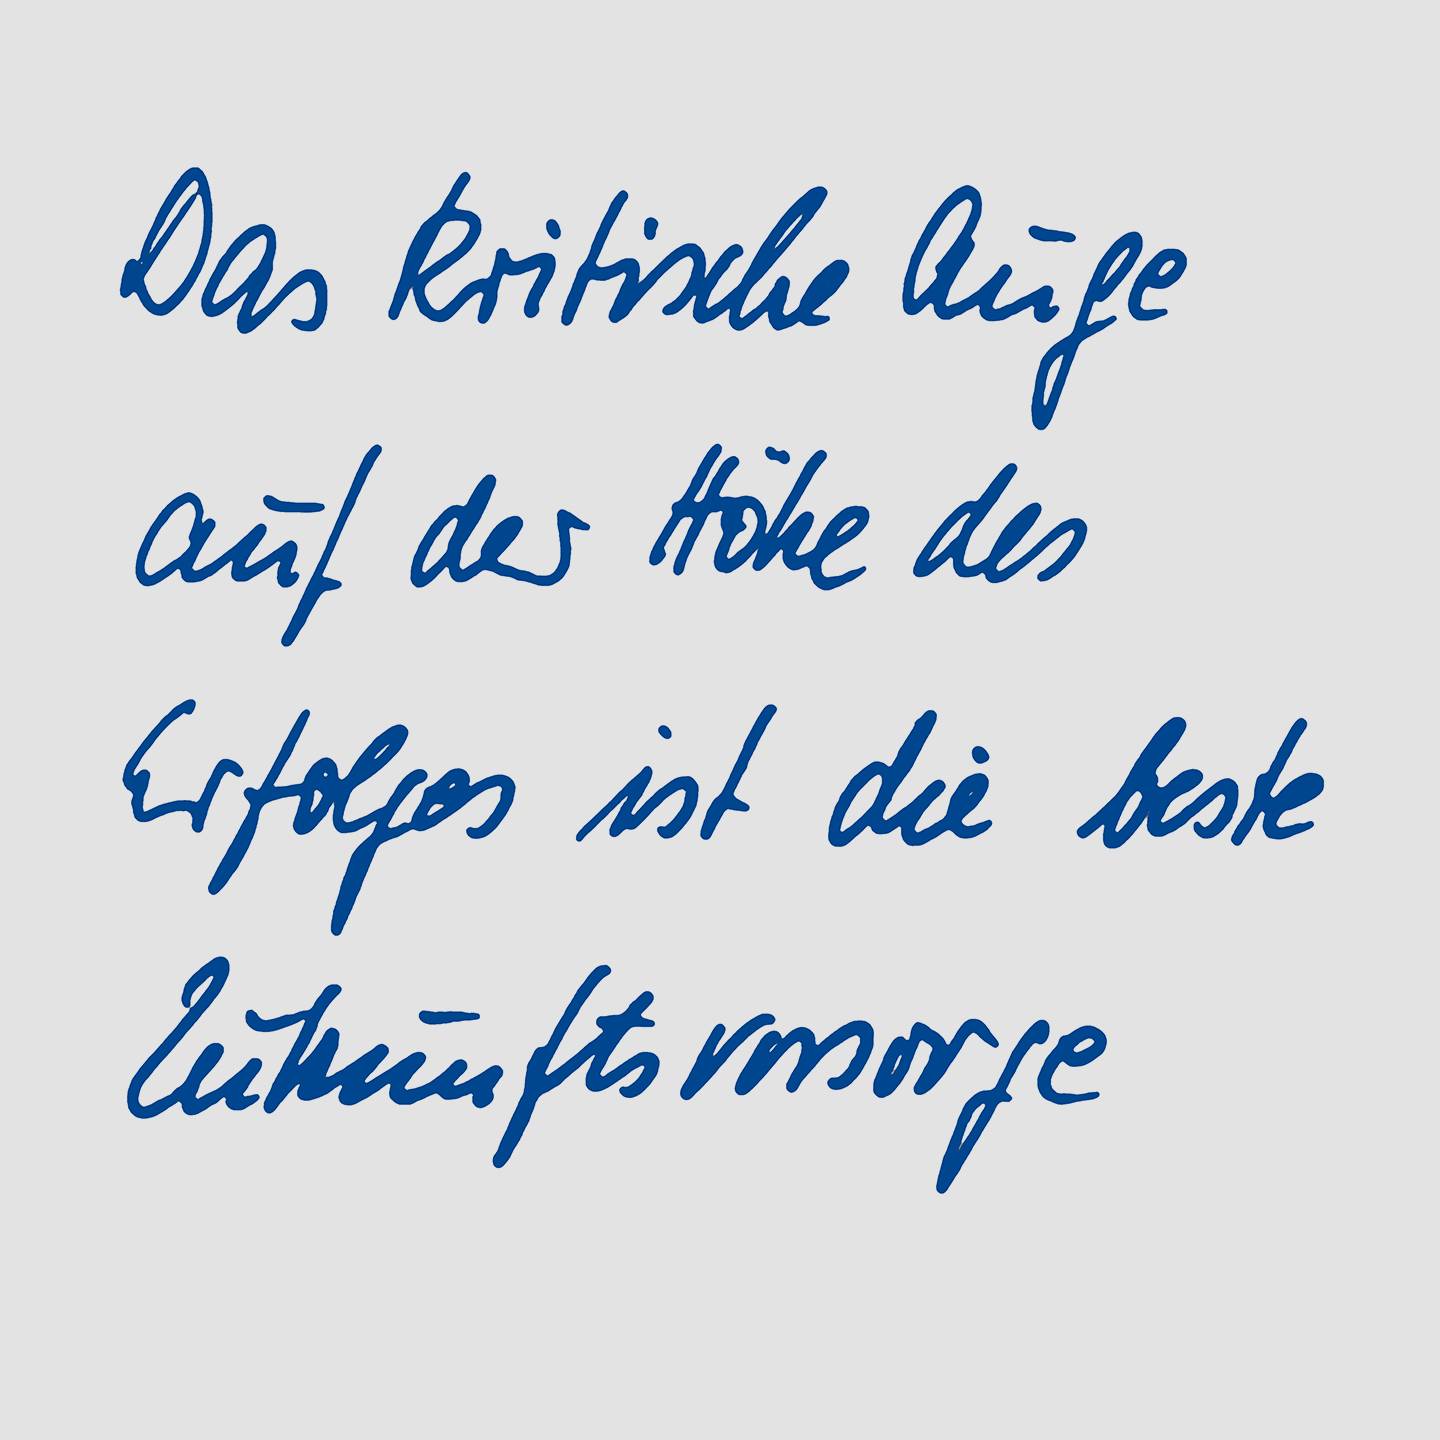 Das kritische Auge
auf der Höhe des
Erfolges ist die beste
Zukunftsvorsorge